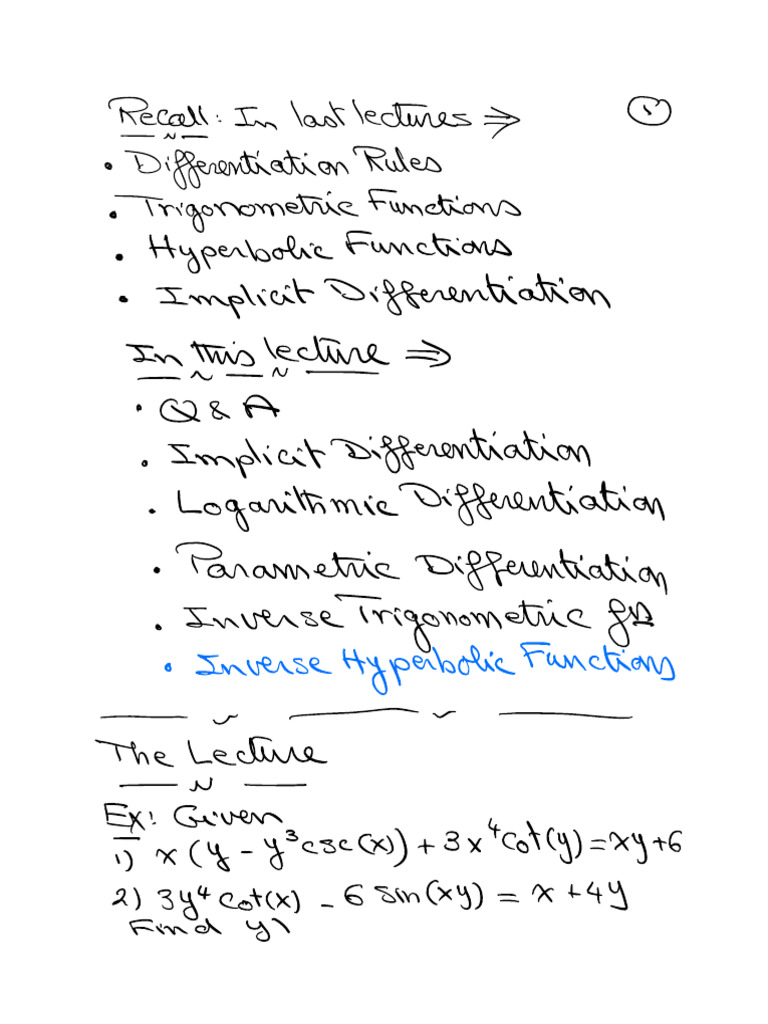 Recall: In last lectures ⇒ 1
• Differentiation Rules
• Trigonometric Functions
• Hyperbolic Functions
• Implicit Differentiation
In this lecture ⇒
• Q & A
• Implicit Differentiation
• Logarithmic Differentiation
• Parametric Differentiation
• Inverse Trigonometric
• Inverse Hyperbolic Functions
The Lecture
Ex: Given
1) x(y - y³csc(x)) + 3x⁴cot(y) = xy+6
2) 3y⁴cot(x) - 6 sin(xy) = x + 4y
Find y)